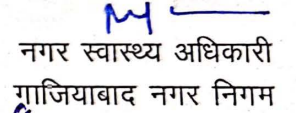 नगर स्वास्थ्य अधिकारी
गाजियाबाद नगर निगम